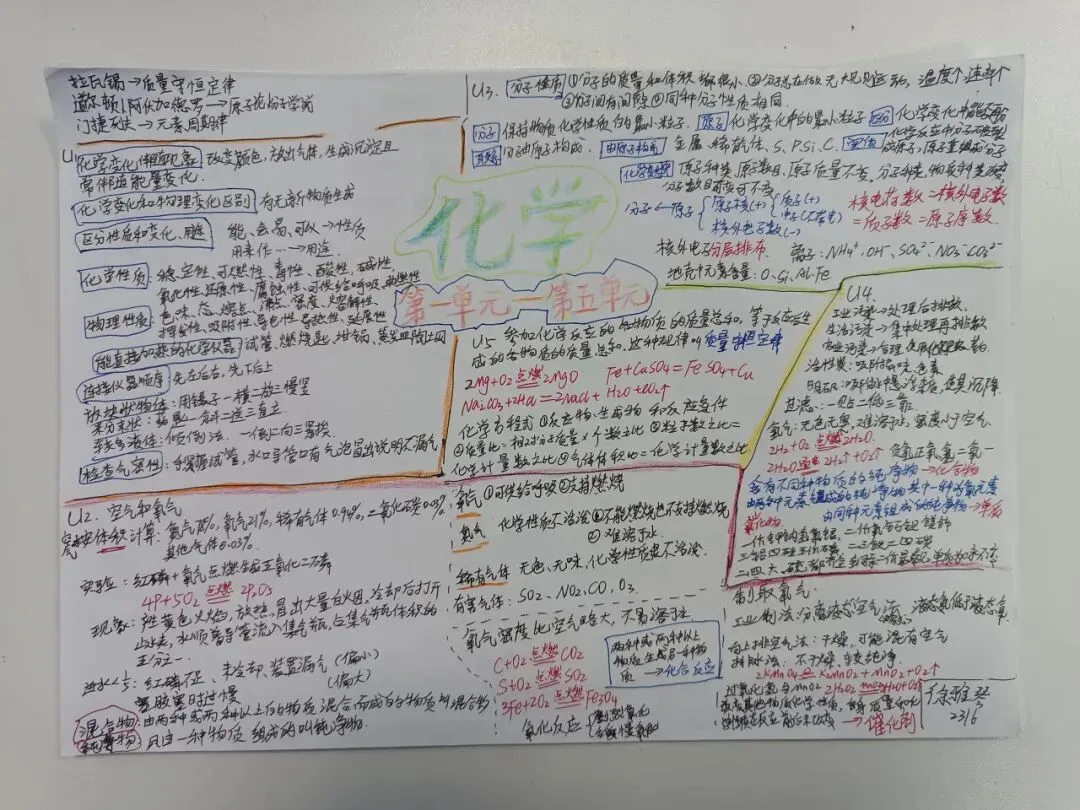 拉瓦锡→质量守恒定律
道尔顿|阿伏加德罗→原子论分子学说
门捷列夫→元素周期律
U1
化学变化伴随现象 改变颜色,放出气体,生成沉淀且
常伴随能量变化.
化学变化和物理变化区别 有无新物质生成
区分性质和变化、用途 能、会、易、可以→性质
用来作……→用途.
化学性质:稳定性,可燃性,毒性,酸碱性,
氧化性,还原性,腐蚀性,可供给呼吸,助燃性
物理性质:色、味、态、熔点、沸点、密度、溶解性、
挥发性、吸附性、导电性、导热性、延展性
能直接加热的化学仪器 试管、燃烧匙、坩埚、蒸发皿
连接仪器顺序 先左后右,先下后上
块状物体:用镊子一横二放三慢竖
粉末状:一斜二送三直立.
液体:倾倒法.一倒二向三紧挨.
检查气密性:手握紧试管,水中导管口有气泡冒出说明不漏气
U3.分子性质 ①分子的质量和体积都很小.②分子总在做无规则运动,温度↑,速率↑
③分子间有间隙④同种分子性质相同.
分子 保持物质化学性质的最小粒子. 原子 化学变化中的最小粒子
分子由原子构成. 由原子构成 金属、稀有气体、S、P、Si、C.
原子种类,原子数目,原子质量不变,分子种类,物质种类改变
分子数目可变可不变
分子←原子{原子核(+){质子(+)
中子(不带电)
核外电子(-)
核电荷数=核外电子数
=质子数=原子序数.
核外电子分层排布. 离子:NH₄⁺.OH⁻.SO₄²⁻.NO₃⁻CO₃²⁻
地壳中元素含量:O、Si、Al、Fe
化学
第一单元—第五单元
U5 参加化学反应的各物质的质量总和,等于反应后生
成的各物质的质量总和,这种规律叫质量守恒定律
2Mg+O₂点燃2MgO Fe+CuSO₄=FeSO₄+Cu
Na₂CO₃+2HCl=2NaCl+H₂O+CO₂↑
化学方程式 ①反应物、生成物和反应条件
②质量比=相对分子质量×个数之比③粒子数之比=
化学计量数之比④气体体积比=化学计量数之比
U4.
工业污染→处理后排放.
生活污染→集中处理再排放
农业污染→合理使用化肥农药.
活性炭:吸附异味,色素
明矾:吸附,使其沉降
过滤:一贴二低三靠
氢气:无色无臭,难溶于水,密度小于空气.
2H₂+O₂点燃2H₂O.
2H₂O通电2H₂↑+O₂↑ 负氢正氧氢二氧一
含有不同种物质的纯净物→化合物
由两种元素组成的纯净物其中一种为氧元素
氧化物. 由同种元素组成的纯净物→单质
U2.空气和氧气
空气按体积计算:氮气78%,氧气21%,稀有气体0.94%,二氧化碳0.03%,
其他气体0.03%.
实验:红磷+氧气点燃生成五氧化二磷
4P+5O₂点燃2P₂O₅
现象:黄色火焰,放热,冒出大量白烟,冷却后打开
止水夹,水顺着导管流入集气瓶,占集气瓶体积的
五分之一.
进水<1/5:红磷不足、未冷却、装置漏气(偏小)
塞胶塞时过慢 (偏大)
混合物:由两种或两种以上的物质混合而成的物质叫混合物
纯净物 只由一种物质组成的叫纯净物.
氧气 ①可供给呼吸②支持燃烧
氮气 化学性质不活泼①不能燃烧也不支持燃烧
②难溶于水
稀有气体 无色、无味,化学性质很不活泼.
有害气体:SO₂、NO₂、CO、O₃.
氧气密度比空气略大,不易溶于水
C+O₂点燃CO₂
S+O₂点燃SO₂
3Fe+2O₂点燃Fe₃O₄
两种或两种以上
物质生成另一种物
质→化合反应
氧化反应{剧烈氧化
缓慢氧化
制取氧气.
工业制法:分离液态空气法.
向上排空气法:干燥,可能混有空气
排水法:不干燥,较纯净.
2KMnO₄△K₂MnO₄+MnO₂+O₂↑
过氧化氢与MnO₂ 2H₂O₂MnO₂2H₂O+O₂↑
→催化剂
23/6